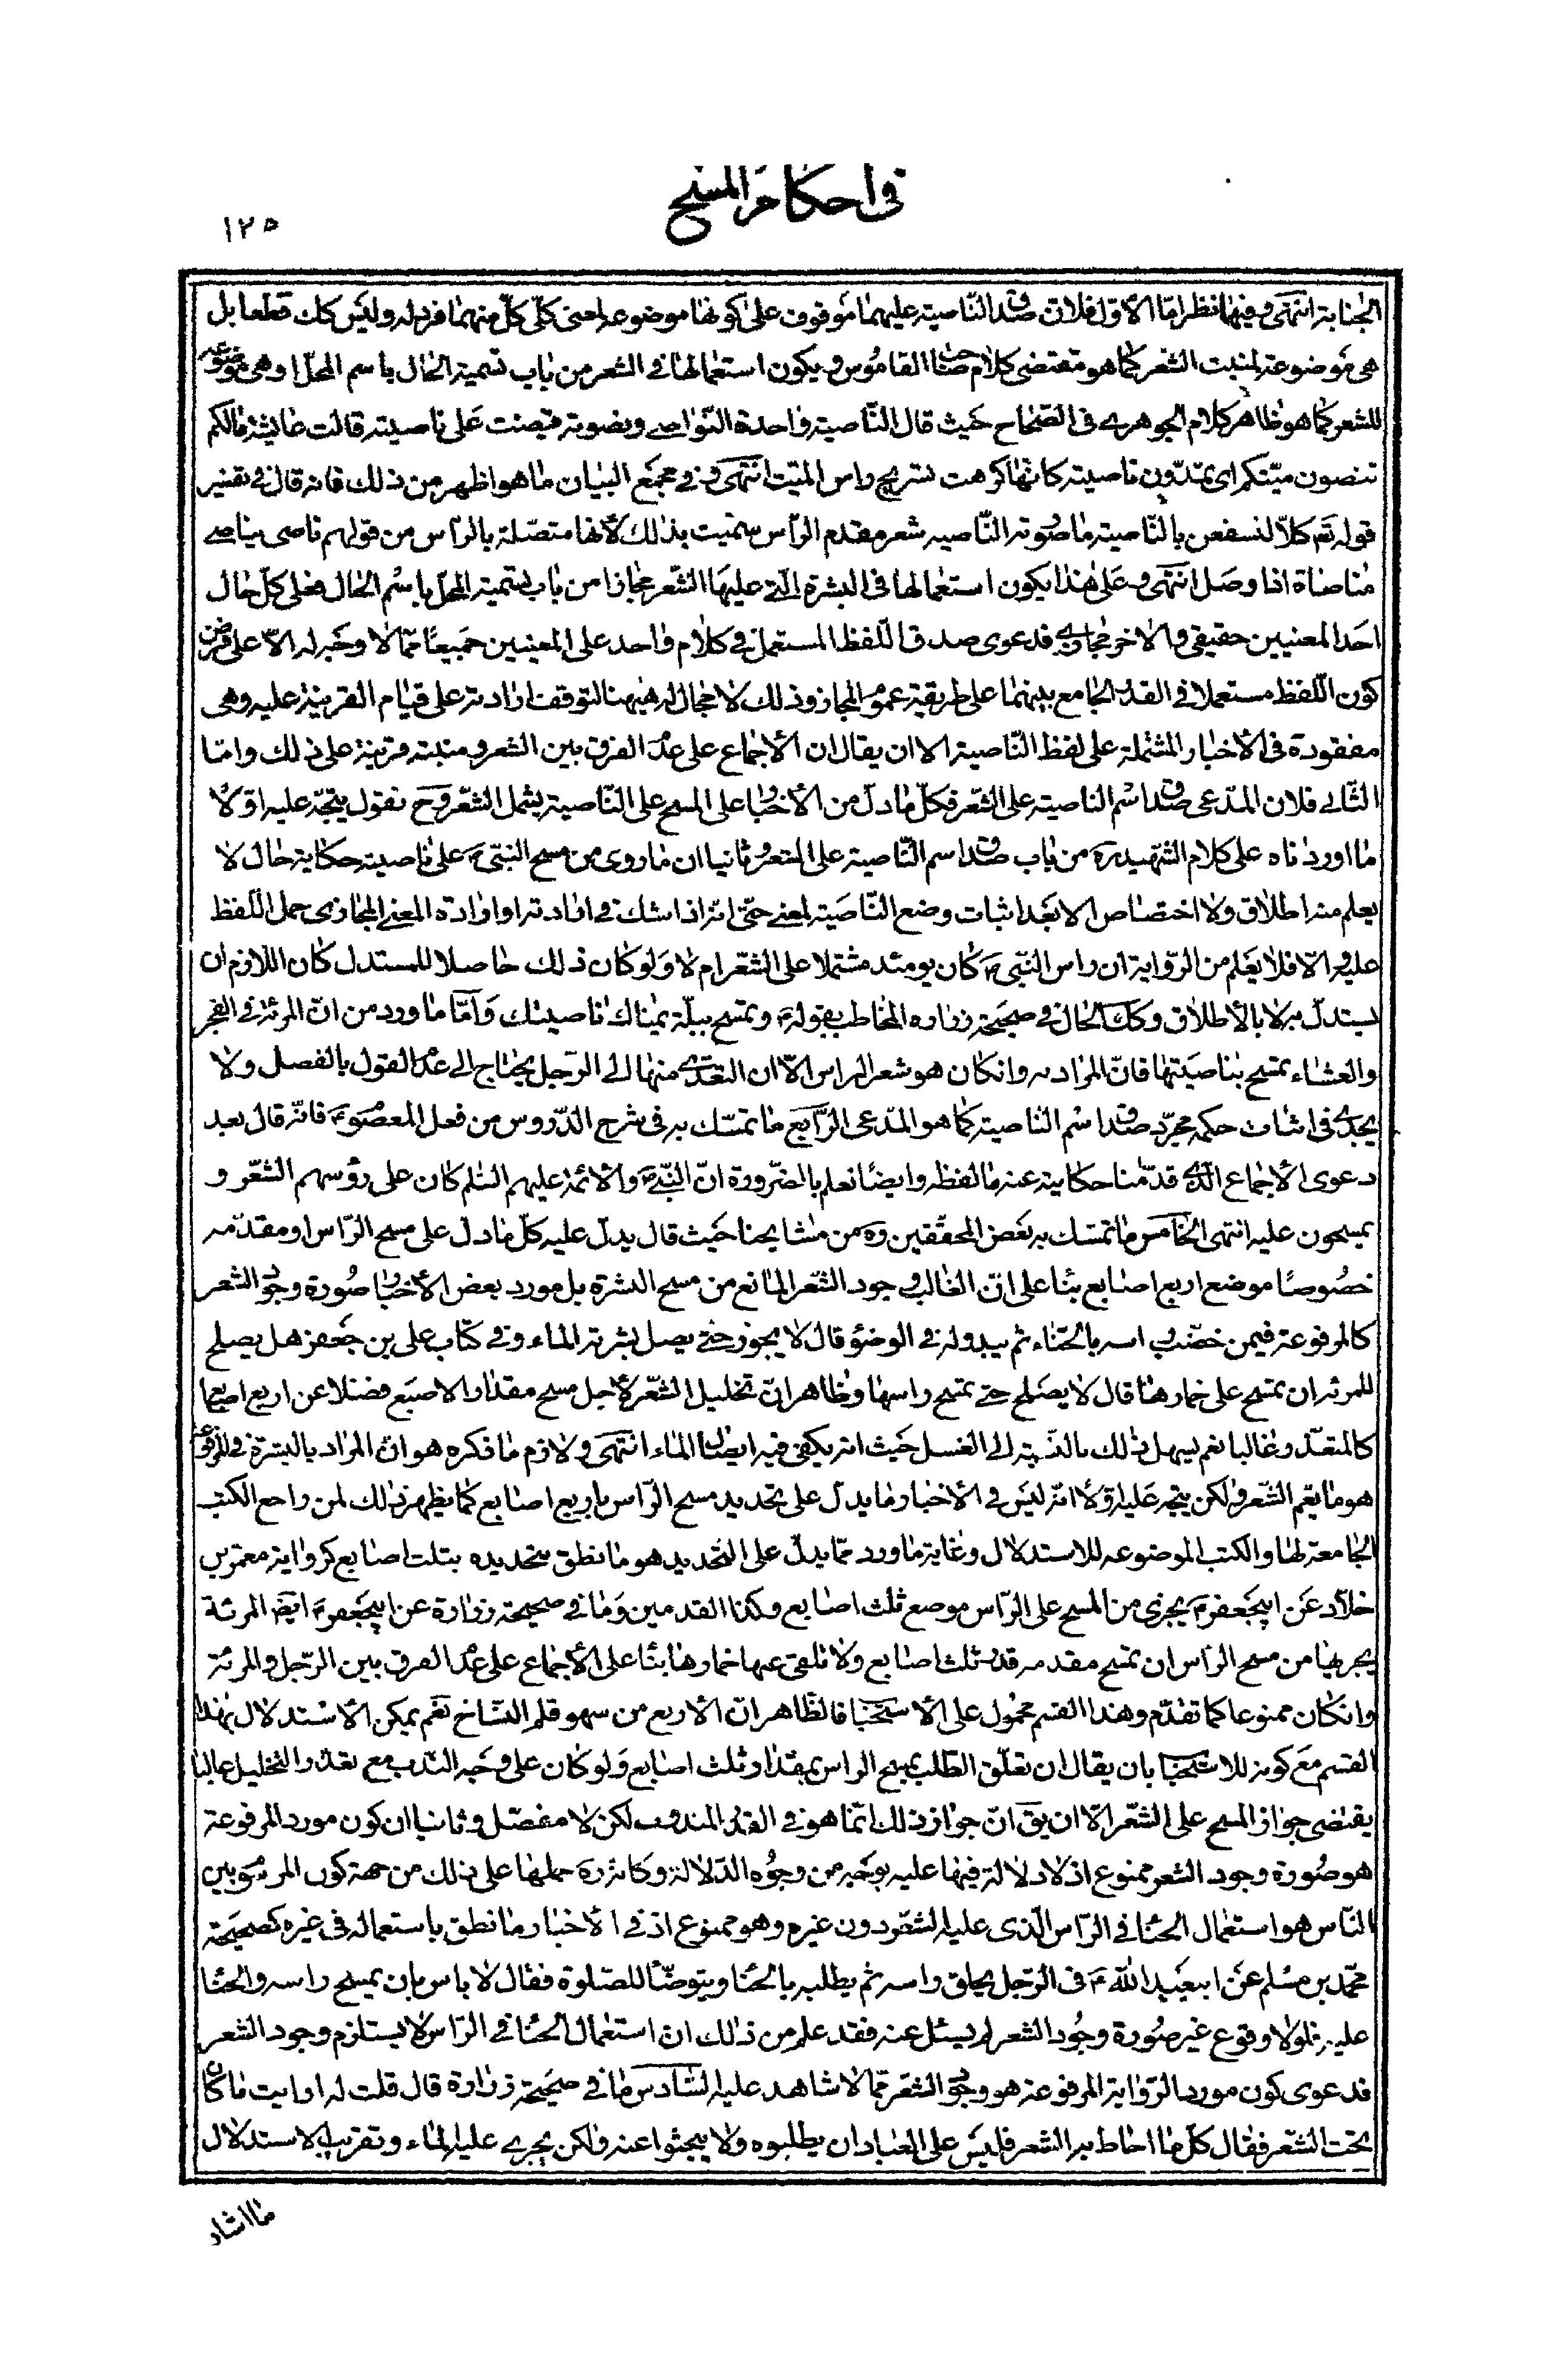 في احكام المسح
١٢٥
الجنابة انتهى وفيها نظر امّا الأوّل فلان صدق النّاصية عليهما موقوف على كونها موضوعة لمعنى كلّى كلّ منهما فرد له وليس كك قطعا بل
هى موضوعة لمنبت الشّعر كما هو مقتضى كلام صاحب القاموس ويكون استعمالها فى الشعر من باب تسمية الحال باسم المحلّ او هى موضوعة
للشعر كما هو ظاهر كلام الجوهرى فى الصّحاح حيث قال النّاصية واحدة النّواصى ونصوته قبضت على ناصيته قالت عايشة ما لكم
تنصون ميّتكم اى تمدّون ناصيته كانّها كرهت تسريح راس الميّت انتهى وفى مجمع البيان ما هو اظهر من ذلك فانه قال فى تفسير
قوله تعم كلّا لنسفعن بالنّاصية ما صورته النّاصيه شعر مقدم الرّأس سمّيت بذلك لأنها متصّلة بالرّاس من قولهم ناصى يناصى
مناصاة اذا وصل انتهى وعلى هذا يكون استعمالها فى البشرة الّتى عليها الشّعر مجازا من باب تسمية المحلّ باسم الحال فعلى كلّ حال
احد المعنيين حقيقى والاخر مجازى فدعوى صدق اللّفظ المستعمل فى كلام واحد على المعنيين جميعًا ممّا لا وجه له الّا على فرض
كون اللّفظ مستعملا فى القدر الجامع بينهما على طريقة عموم المجاز وذلك لا مجال له هيهنا لتوقف ارادته على قيام القرينة عليه وهى
مفقودة فى الأخبار المشتملة على لفظ النّاصية الا ان يقال ان الأجماع على عدم الفرق بين الشعر ومنبته قرينة على ذلك وامّا
الثّانى فلان المدّعى صدق اسم الناصية على الشّعر فكلّ ما دلّ من الأخبار على المسح على النّاصية يشمل الشّعر وح نقول يتجّه عليه اوّلا
ما اوردناه على كلام الشّهيد ره من باب صدق اسم النّاصية على الشعر وثانيا ان ما روى من مسح النبىّ ص على ناصيته حكاية حال لا
يعلم منه اطلاق ولا اختصاص الا بعد اثبات وضع النّاصية لمعنى حتّى انّه اذا شك فى ارادته او ارادة المعنى المجازى حمل اللّفظ
عليه والّا فلا يعلم من الرّواية ان راس النّبى ص كان يومئذ مشتملا على الشّعر ام لا ولو كان ذلك حاصلا للمستدل كان اللّازم ان
يستدلّ به لا بالأطلاق وكك الحال فى صحيحة زراره المخاطب بقوله ع وتمسح ببلّة يمناك ناصيتك وامّا ما ورد من انّ المرئة فى الفجر
والعشاء تمسح بناصيتها فانّ المراد به وانكان هو شعر الراس الّا ان التعدّى منها الى الرّجل يحتاج الى عدم القول بالفصل ولا
يجدى فى اثبات حكمه مجرّد صدق اسم النّاصية كما هو المدّعى الرّابع ما تمسّك به فى شرح الدّروس من فعل المعصوم ع فانّه قال بعد
دعوى الأجماع الّذى قدّمنا حكايته عنه ما لفظه وايضًا نعلم بالضّرورة انّ النّبى ص والأئمة عليهم السّلم كان على رؤسهم الشّعر و
يمسحون عليه انتهى الخامس ما تمسّك به بعض المحقّقين ره من مشايخنا حيث قال يدلّ عليه كلّ ما دلّ على مسح الرّاس او مقدّمه
خصُوصًا موضع اربع اصابع بناء على انّ الغالب وجود الشّعر المانع من مسح البشرة بل مورد بعض الأخبار صورة وجود الشعر
كالمرفوعة فيمن خضب راسه بالحنّاء ثم يبدو له فى الوضوء قال لا يجوز حتى يصل بشرته الماء وفى كتاب على بن جعفر هل يصلح
للمرئة ان تمسح على خمارها قال لا يصلح حتى تمسح راسها وظاهر انّ تخليل الشّعر لأجل مسح مقدار الاصبع فضلا عن اربع اصابع
كالمتعذّر غالبا نعم يسهل ذلك بالنّسبة الى الغسل حيث انه يكفى فيه ايصال الماء انتهى ولازم ما ذكره هو انّ المراد بالبشرة فى المرفوعة
هو ما يعم الشّعر ولكن يتّجه عليه اوّلا انّه ليس فى الأخبار ما يدلّ على تحديد مسح الرّاس باربع اصابع كما يظهر ذلك لمن راجع الكتب
الجامعة لها والكتب الموضوعه للاستدلال وغاية ما ورد ممّا يدلّ على التّحديد هو ما نطق بتحديده بثلث اصابع كرواية معمّر بن
خلّاد عن ابيجعفر ع يجزى من المسح على الرّاس موضع ثلث اصابع وكذا القدمين وما فى صحيحة زرارة عن ابيجعفر ع ايضا المرئة
يجزيها من مسح الرّاس ان تمسح مقدمه قدر ثلث اصابع ولا تلقى عنها خمارها بناء على الأجماع على عدم الفرق بين الرّجل والمرئة
وانكان ممنوعا كما تقدّم وهذا القسم محمول على الأستحباب فالظّاهر انّ الأربع من سهو قلم النّساخ نعم يمكن الأستدلال بهذا
القسم مع كونه للاستحباب بان يقال ان تعلّق الطّلب بمسح الراس بمقدار ثلث اصابع ولو كان على وجه النّدب مع تعذّر التّخليل غالبا
يقتضى جواز المسح على الشّعر الّا ان يق انّ جواز ذلك انّما هو فى القدر المندوب لكن لا مفصّل وثانيا ان كون مورد المرفوعة
هو صُورة وجود الشعر ممنوع اذ لا دلالة فيها عليه بوجه من وجوه الدّلالة وكانه ره حملها على ذلك من جهة كون المرسوم بين
النّاس هو استعمال الحنّا فى الرّاس الّذى عليه الشّعر دون غيره وهو ممنوع اذ فى الأخبار ما نطق باستعماله فى غيره كصحيحة
محمّد بن مسلم عن ابيعبد اللّه ع فى الرّجل يحلق راسه ثم يطليه بالحنّا ويتوضّأ للصّلوة فقال لا باس بان يمسح راسه والحنّا
عليه فلولا وقوع غير صورة وجُود الشعر لم يسئل عنه فقد علم من ذلك ان استعمال الحنّا فى الرّاس لا يستلزم وجود الشعر
فدعوى كون مورد الرّواية المرفوعة هو وجود الشّعر ممّا لا شاهد عليه السّادس ما فى صحيحة زرارة قال قلت له ارايت ما كان
تحت الشّعر فقال كلّ ما احاط به الشعر فليس على العباد ان يطلبوه ولا يبحثوا عنه ولكن يجرى عليه الماء وتقريب الاستدلال
ما اشار